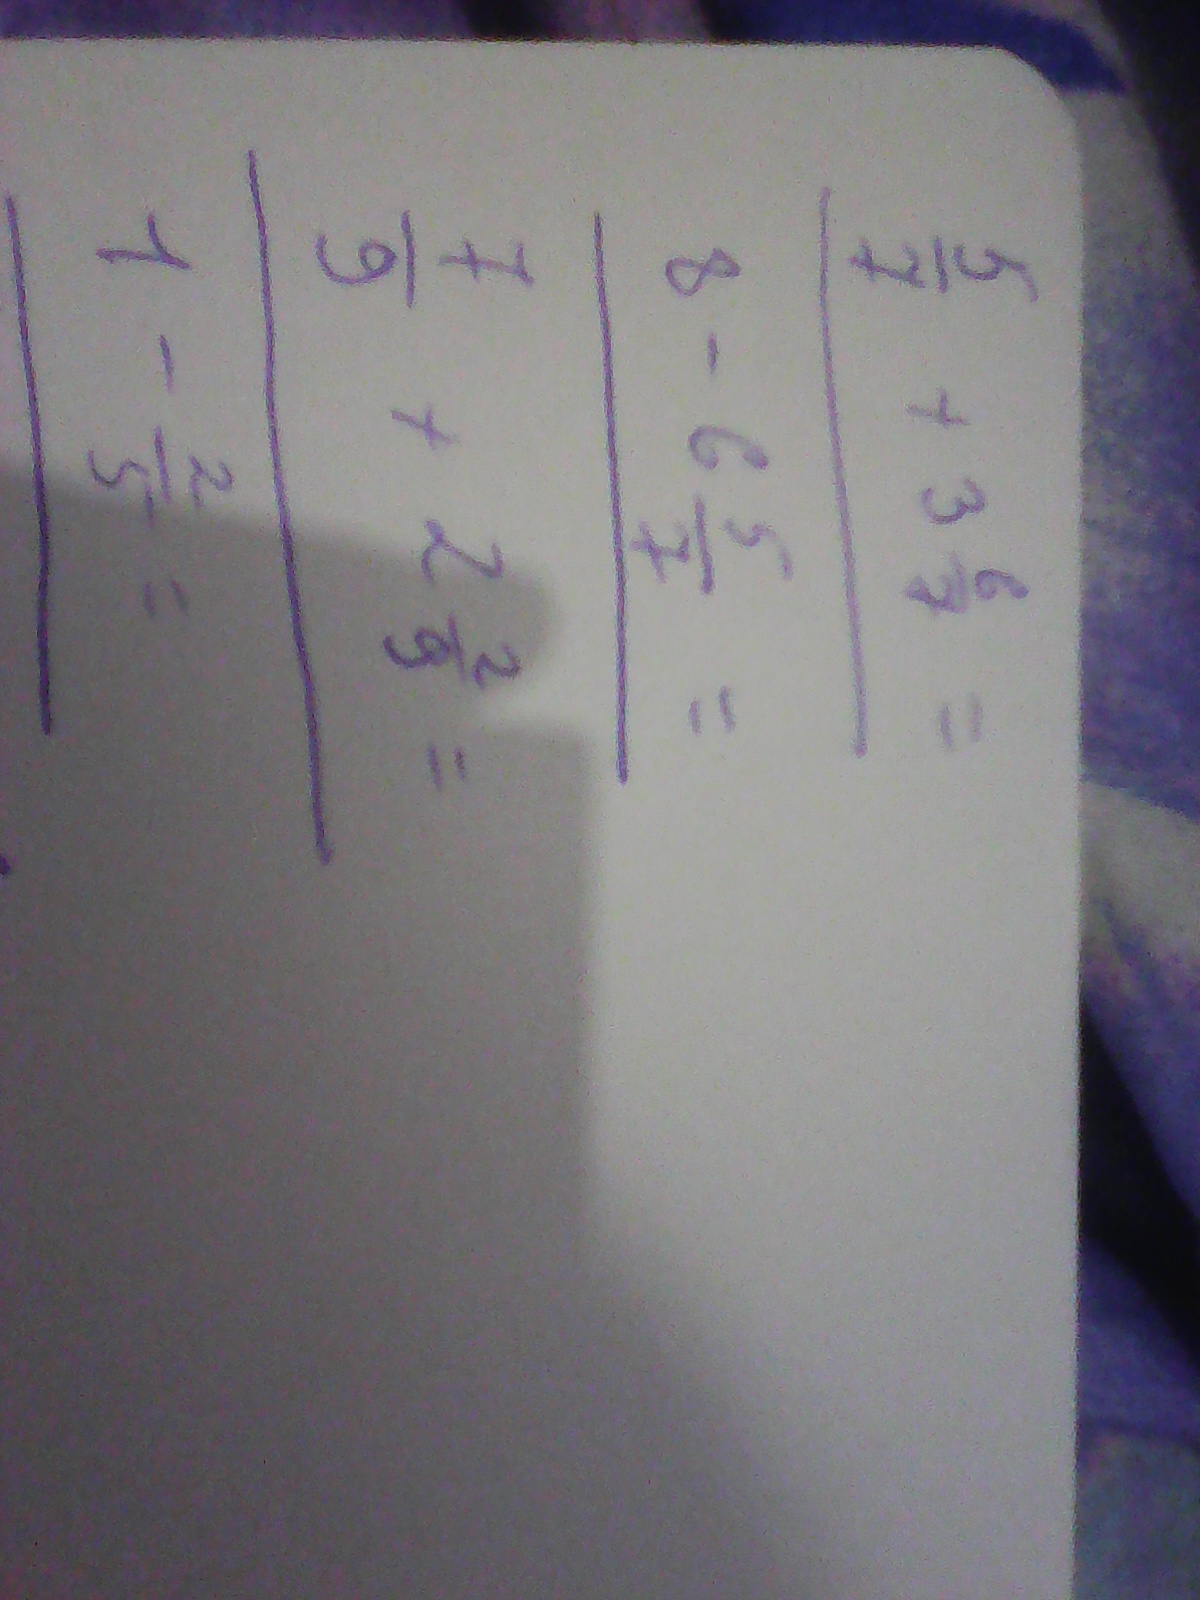 5/7 + 3 6/7 =
8 - 6 5/7 =
7/9 + 2 2/9 =
1 - 2/5 =